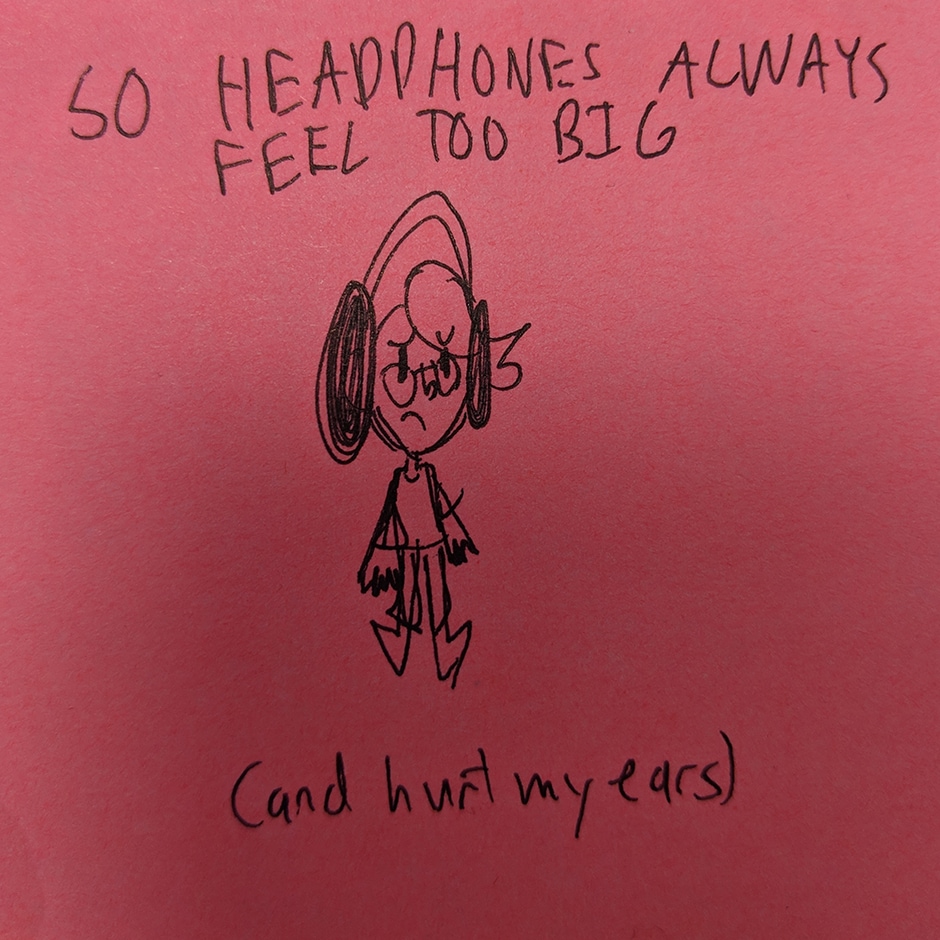 SO HEADPHONES ALWAYS
FEEL TOO BIG
(and hurt my ears)